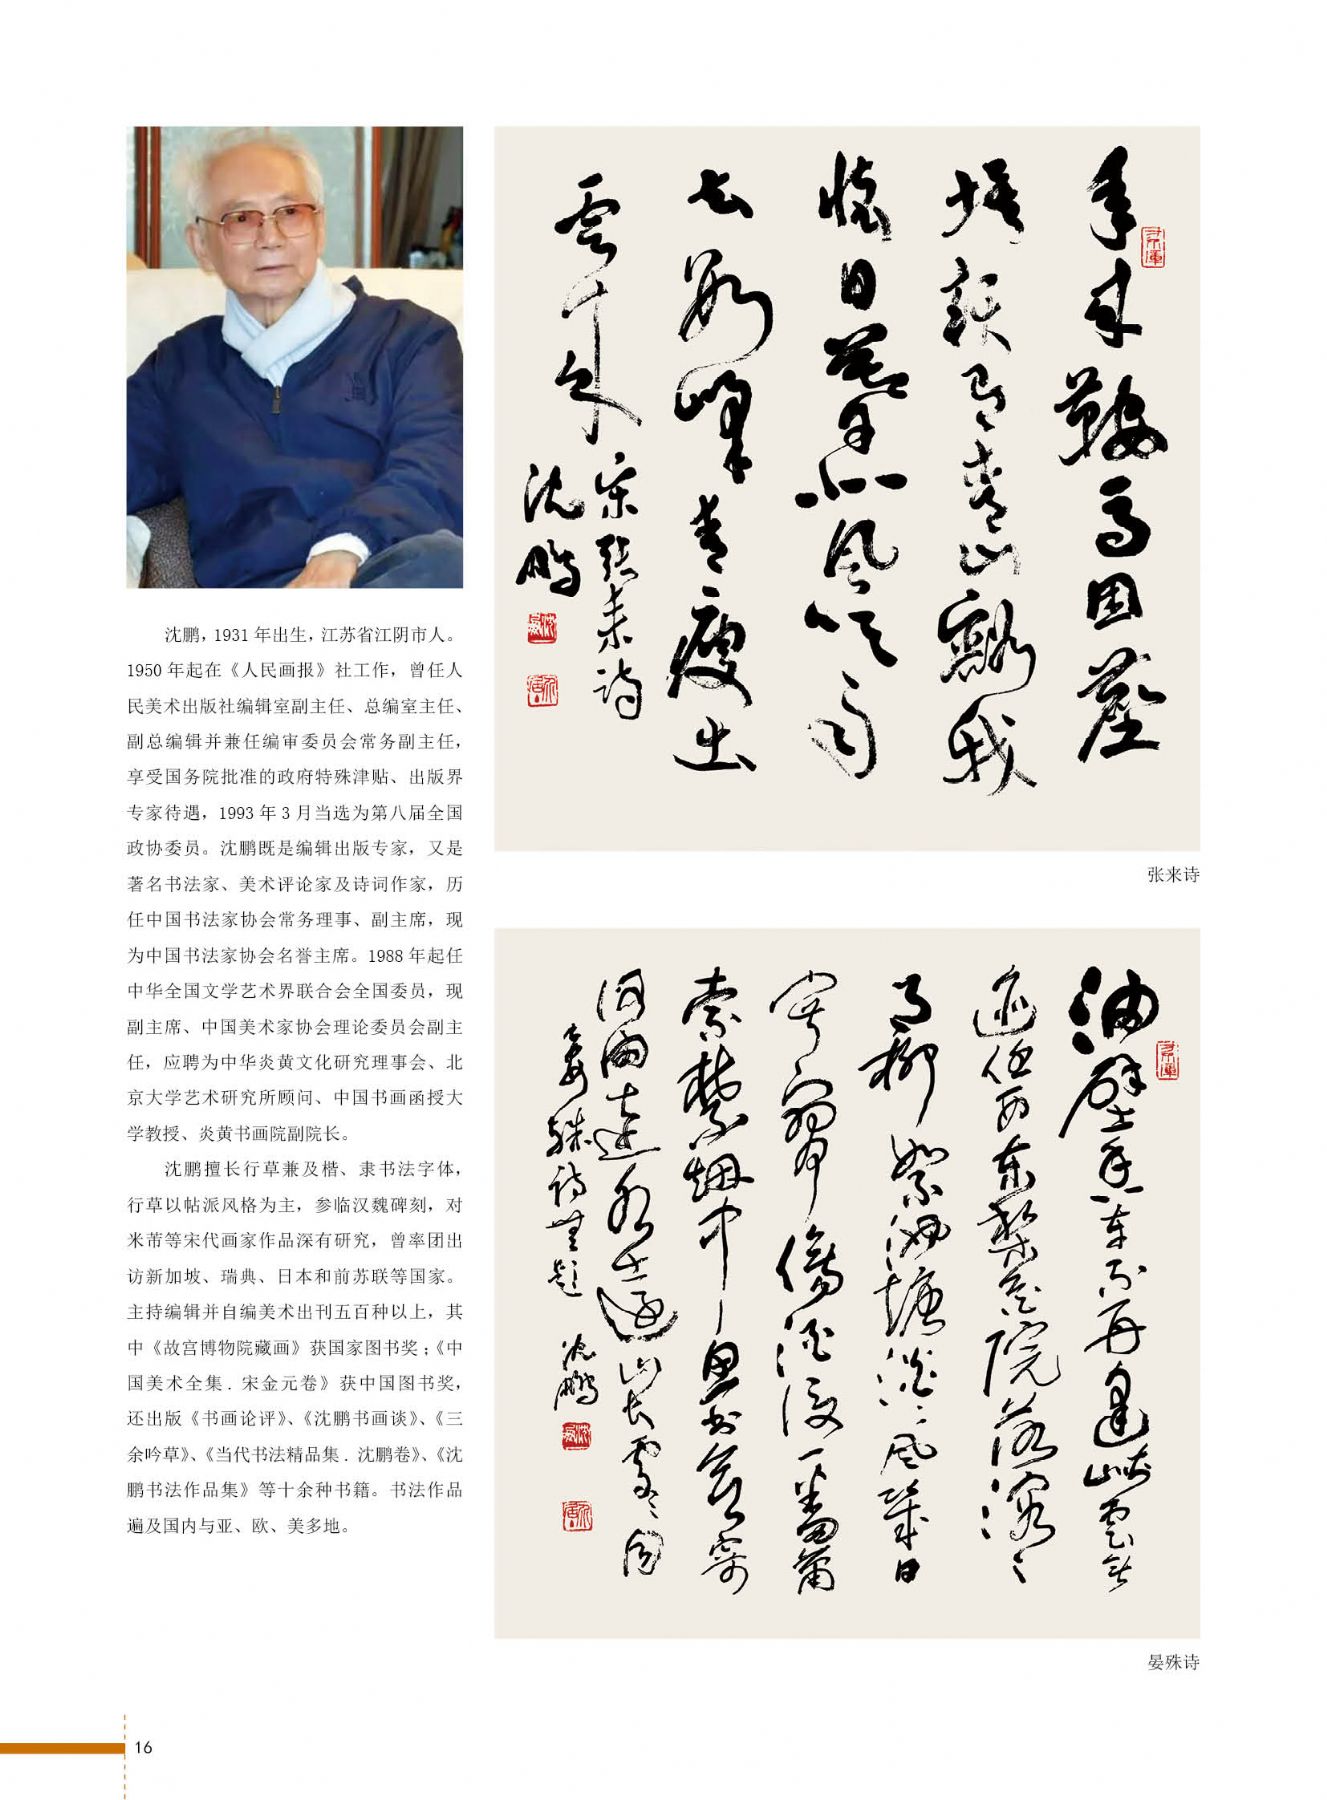 沈鹏，1931 年出生，江苏省江阴市人。
1950 年起在《人民画报》社工作，曾任人
民美术出版社编辑室副主任、总编室主任、
副总编辑并兼任编审委员会常务副主任，
享受国务院批准的政府特殊津贴、出版界
专家待遇，1993 年 3 月当选为第八届全国
政协委员。沈鹏既是编辑出版专家，又是
著名书法家、美术评论家及诗词作家，历
任中国书法家协会常务理事、副主席，现
为中国书法家协会名誉主席。1988 年起任
中华全国文学艺术界联合会全国委员，现
副主席、中国美术家协会理论委员会副主
任，应聘为中华炎黄文化研究理事会、北
京大学艺术研究所顾问、中国书画函授大
学教授、炎黄书画院副院长。
沈鹏擅长行草兼及楷、隶书法字体，
行草以帖派风格为主，参临汉魏碑刻，对
米芾等宋代画家作品深有研究，曾率团出
访新加坡、瑞典、日本和前苏联等国家。
主持编辑并自编美术出刊五百种以上，其
中《故宫博物院藏画》获国家图书奖；《中
国美术全集．宋金元卷》获中国图书奖，
还出版《书画论评》、《沈鹏书画谈》、《三
余吟草》、《当代书法精品集．沈鹏卷》、《沈
鹏书法作品集》等十余种书籍。书法作品
遍及国内与亚、欧、美多地。
年来鞍馬困塵
埃賴有青山豁我
懷日暮北風吹雨
去數峰青瘦出
雲来
宋張耒詩
沈鵬
张来诗
油壁香車不再逢峽雲無
迹任西東梨花院落溶溶
月柳絮池塘淡淡風幾日
寂寥傷酒後一番蕭
索禁烟中魚書欲寄
何由達水遠山長處處同
晏殊詩無題 沈鵬
晏殊诗
16